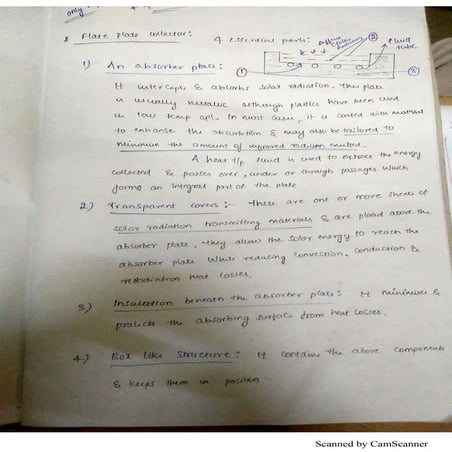 only
Flate plate collector: 4 essential parts:
Diffuse
Solar
Radiation
②
fluid
tube
① ③
1) An absorber plate:
It intercepts & absorbs solar radiation. This plate
is usually metallic although plastics have been used
in low temp apl. In most cases, it is coated with material
to enhance the absorbtion & may also be tailored to
minimise the amount of infrared radiation emitted.
A heat t/f fluid is used to extract the energy
collected & passes over, under or through passages which
forms an integral part of the plate
2.) Transparent covers:- These are one or more sheets of
solar radiation transmitting materials & are placed above the
absorber plate. They allow the solar energy to reach the
absorber plate while reducing convection, conduction &
reradiation heat losses.
3.) Insulation beneath the absorber plate: It minimises &
protects the absorbing surface from heat losses.
4.) Box like structure: It contains the above components
& keeps them in position.
Scanned by CamScanner